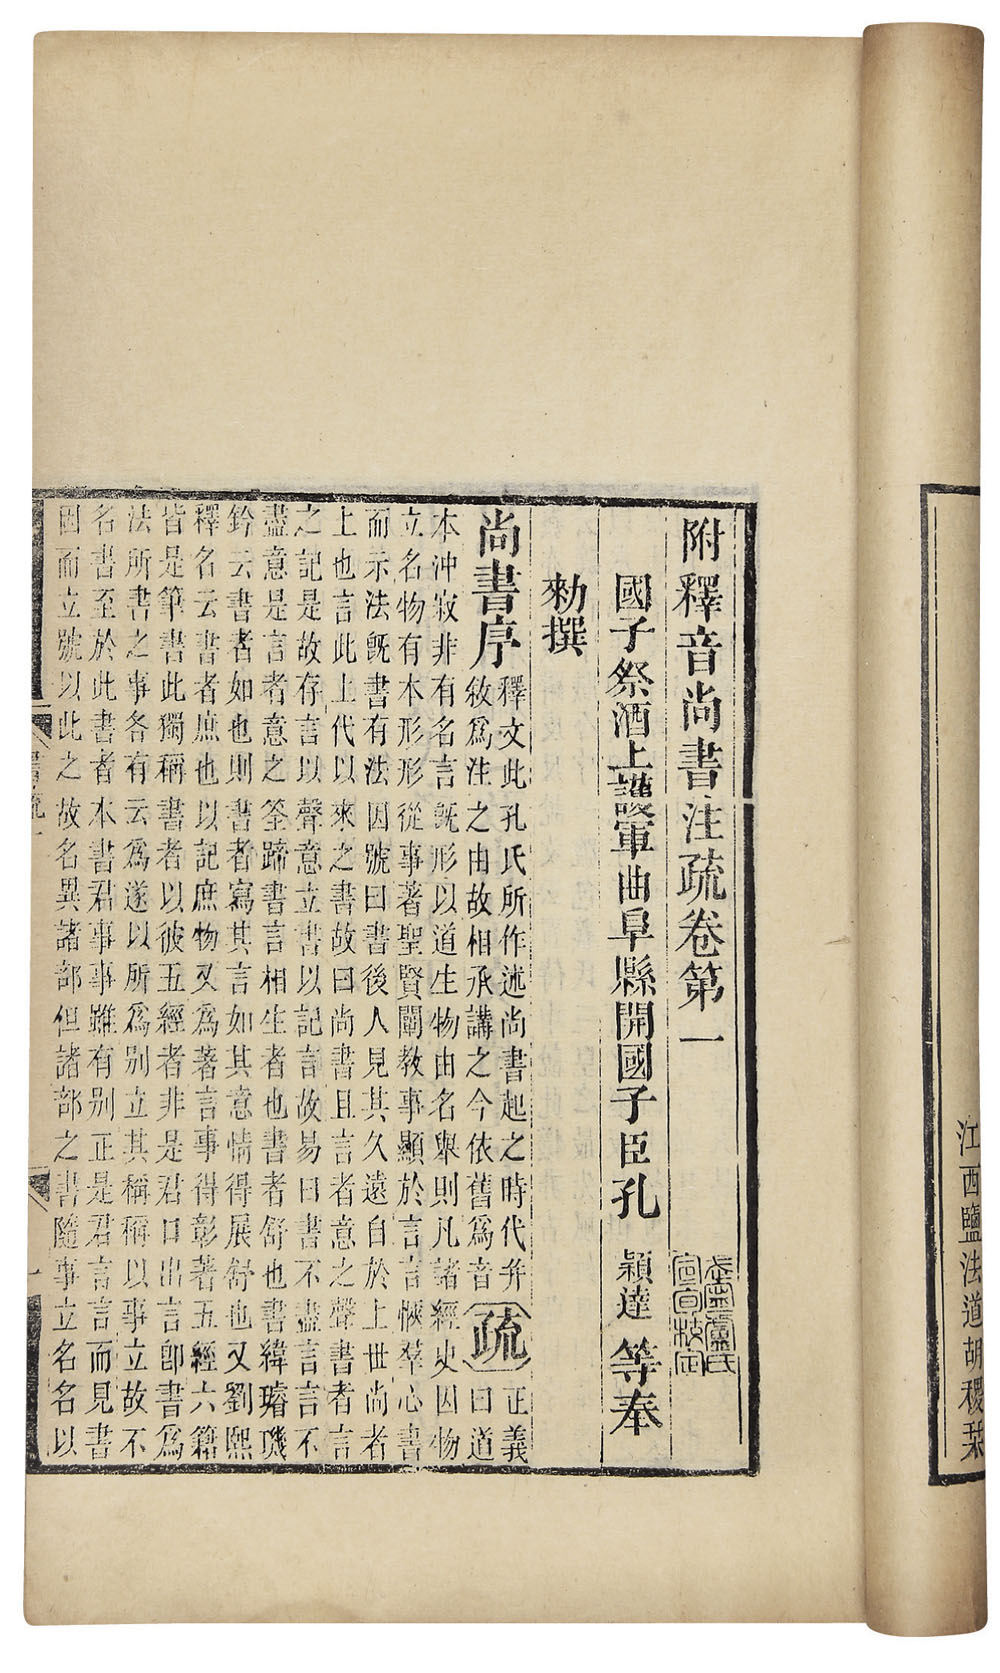 江西鹽法道胡稷栞
附釋音尚書注疏卷第一
國子祭酒上護軍曲阜縣開國子臣孔 穎達 等奉
勑撰
尚書序
釋文此孔氏所作述尚書起之時代幷
敘爲注之由故相承講之今依舊爲音
疏
正義
曰道
本沖寂非有名言旣形以道生物由名舉則凡諸經史因物
立名物有本形形從事著聖賢闡教事顯於言言愜羣心書
而示法旣書有法因號曰書後人見其久遠自於上世尚者
上也言此上代以來之書故曰尚書且言者意之聲書者言
之記是故存言以聲意立書以記言故易曰書不盡言言不
盡意是言者意之筌蹄書言相生者也書者舒也書緯璿璣
鈐云書者如也則書者寫其言如其意情得展舒也又劉熙
釋名云書者庶也以記庶物又爲著言事得彰著五經六籍
皆是筆書此獨稱書者以彼五經者非是君口出言卽書爲
法所書之事各有云爲遂以所爲別立其稱稱以事立故不
名書至於此書者本書君事事雖有別正是君言言而見書
因而立號以此之故名異諸部但諸部之書隨事立名名以